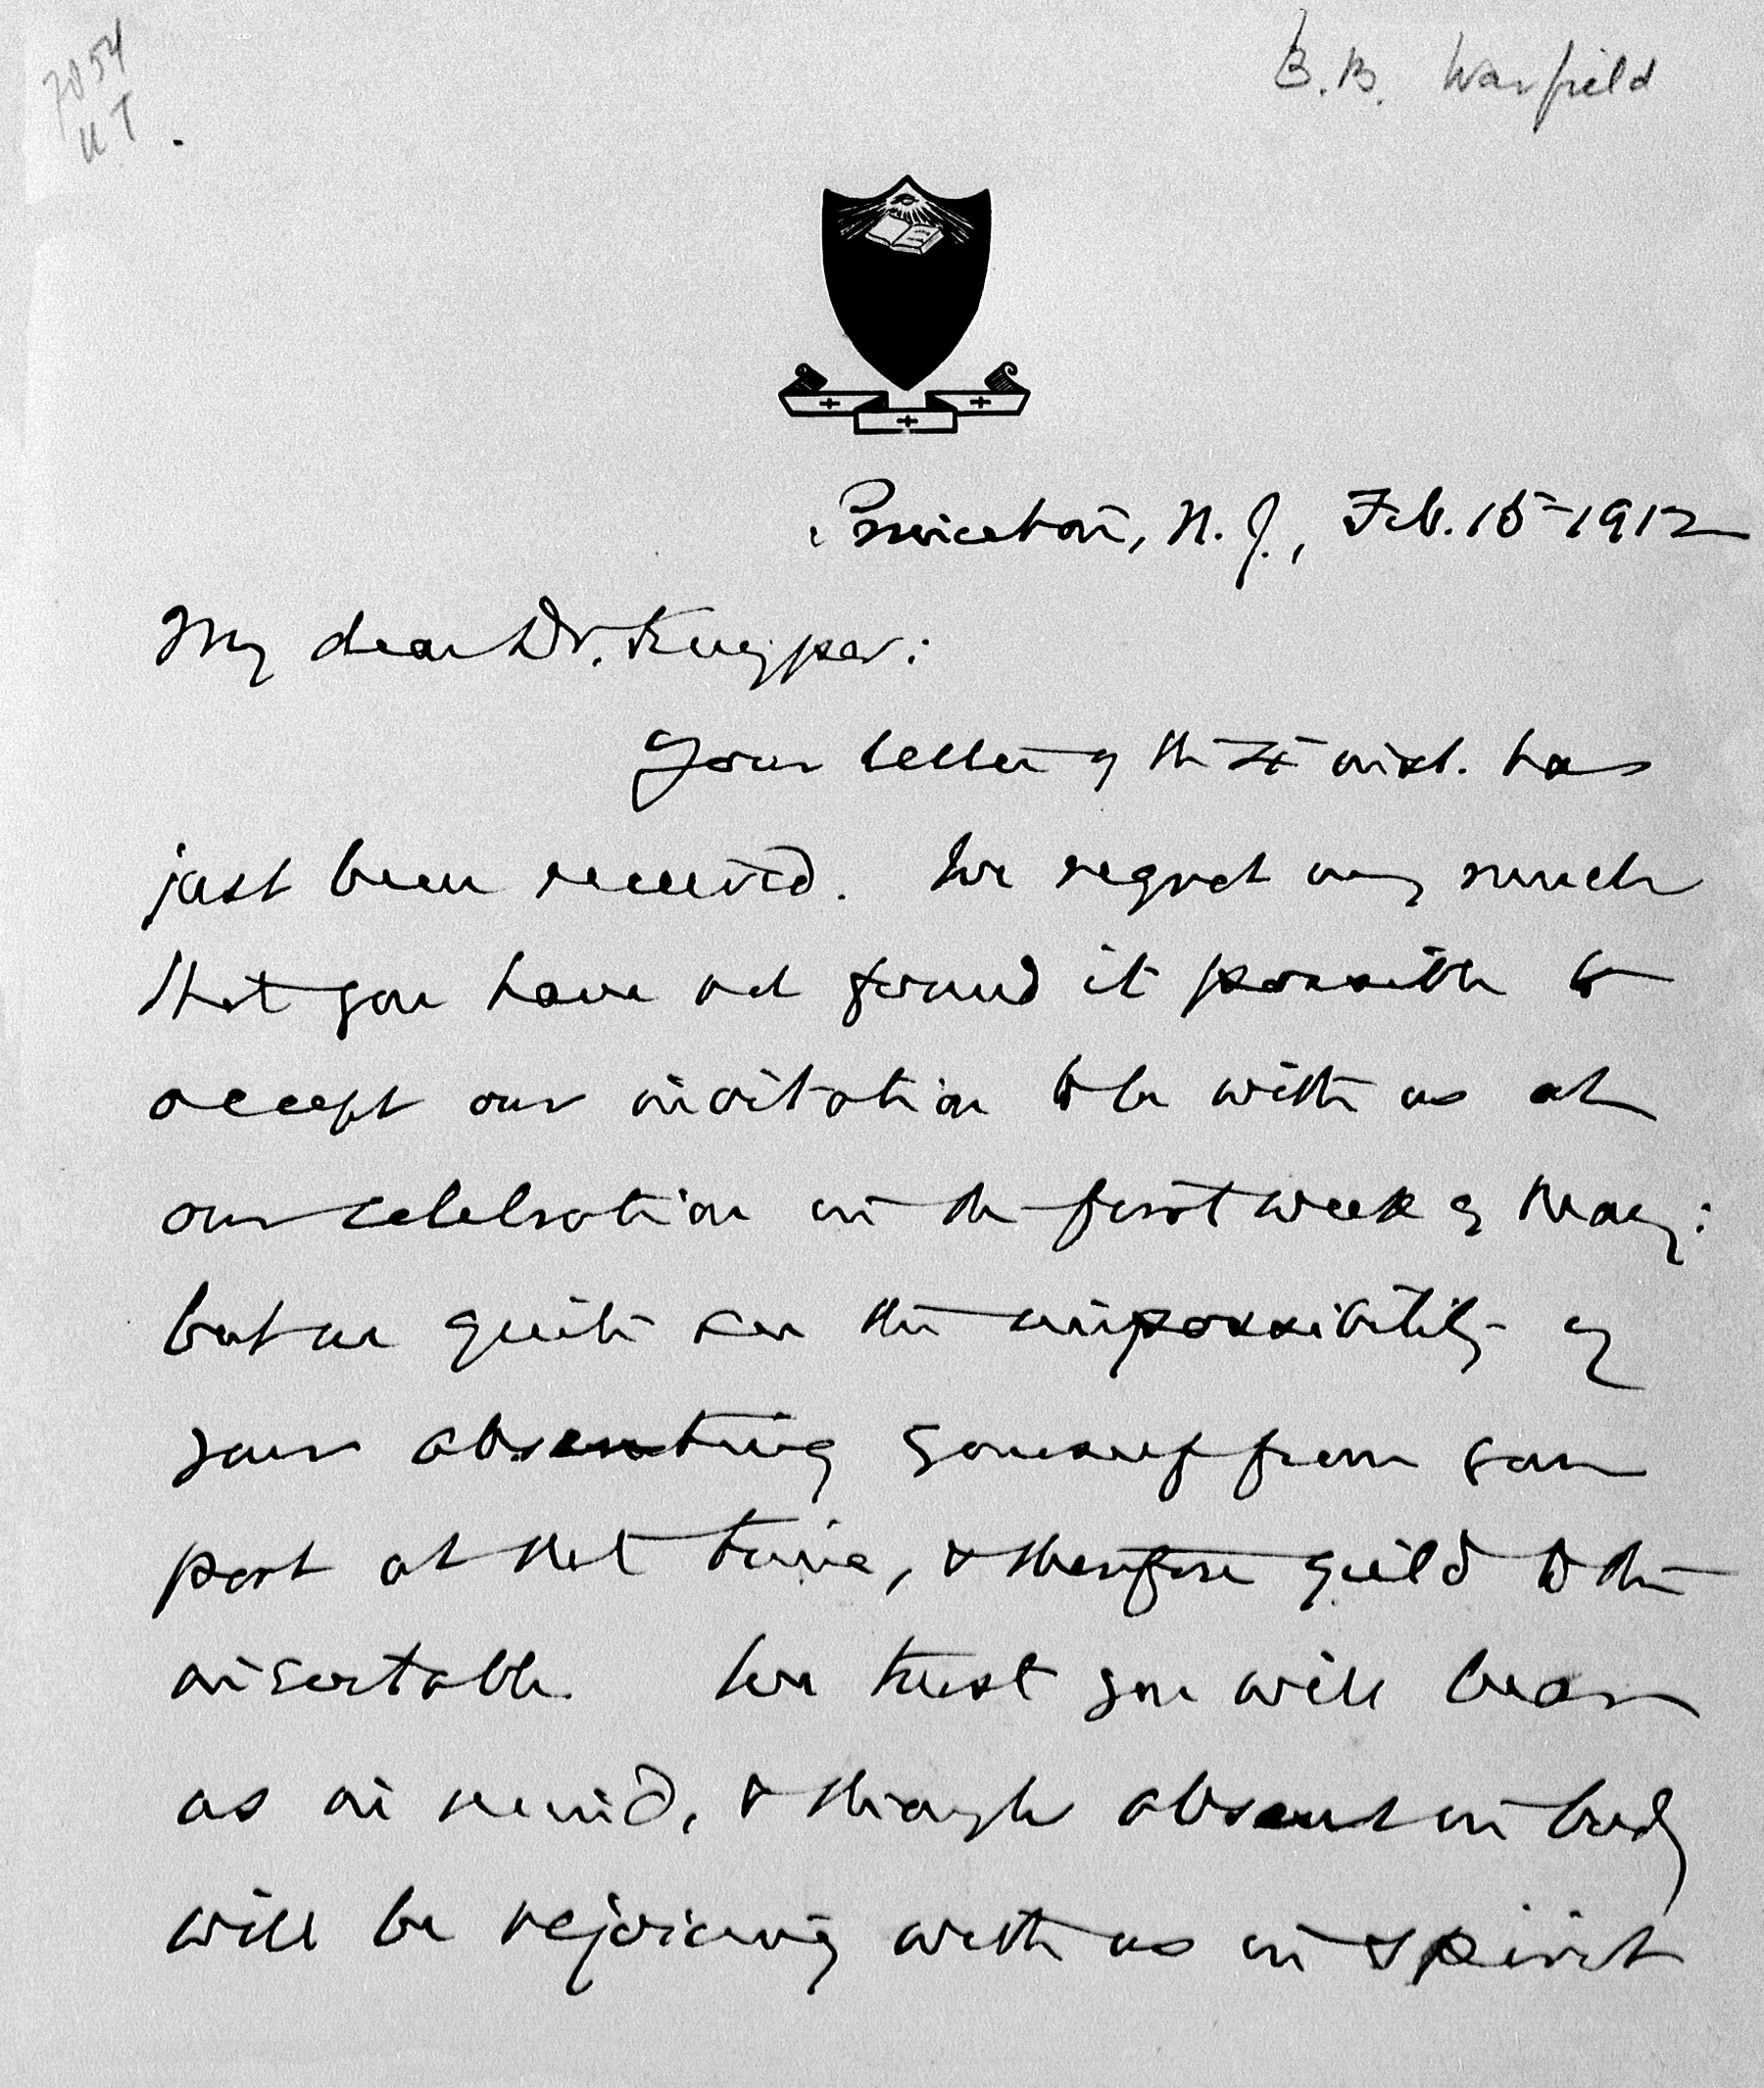 7054
B. B. Warfield
Princeton, N. J., Feb. 15 1912
My dear Dr. Kuyper:
Your letter of the inst. has
just been received. We regret very much
that you have not found it possible to
accept our invitation to be with us at
our celebration in the first week of May:
but we quite see the impossibility of
your absenting yourself from your
post at that time, & therefore yield to the
inevitable. We trust you will bear
us in mind, & though absent in body
will be rejoicing with us in spirit